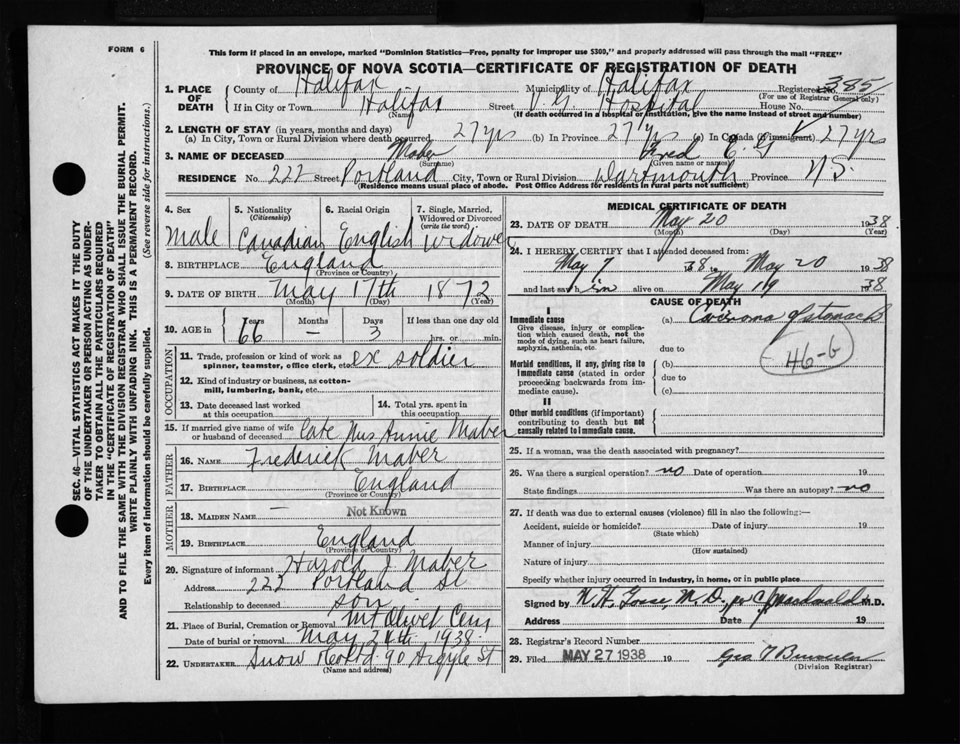 FORM 6
This form if placed in an envelope, marked "Dominion Statistics—Free, penalty for improper use $300," and properly addressed will pass through the mail "FREE"
PROVINCE OF NOVA SCOTIA—CERTIFICATE OF REGISTRATION OF DEATH
1. PLACE OF DEATH
County of Halifax Municipality of Halifax Registered No. 385
(For use of Registrar General only)
If in City or Town Halifax Street V. G. Hospital House No.
(Name) (If death occurred in a hospital or institution, give the name instead of street and number)
2. LENGTH OF STAY (in years, months and days)
(a) In City, Town or Rural Division where death occurred 27 yrs (b) In Province 27 yrs (c) In Canada (if immigrant) 27 yr
3. NAME OF DECEASED Maber Fred E. G
(Surname) (Given name or names)
RESIDENCE No. 222 Street Portland City, Town or Rural Division Dartmouth Province N.S.
(Residence means usual place of abode. Post Office Address for residents in rural parts not sufficient)
4. Sex Male
5. Nationality (Citizenship) Canadian
6. Racial Origin English
7. Single, Married, Widowed or Divorced (write the word) widower
8. BIRTHPLACE England
(Province or Country)
9. DATE OF BIRTH May 17th 1872
(Month) (Day) (Year)
10. AGE in Years Months Days If less than one day old
66 — 3 hrs. or min.
OCCUPATION
11. Trade, profession or kind of work as spinner, teamster, office clerk, etc. ex soldier
12. Kind of industry or business, as cotton-mill, lumbering, bank, etc.
13. Date deceased last worked at this occupation
14. Total yrs. spent in this occupation
15. If married give name of wife or husband of deceased late Mrs Annie Maber
FATHER
16. NAME Frederick Maber
17. BIRTHPLACE England
(Province or Country)
MOTHER
18. MAIDEN NAME — Not Known
19. BIRTHPLACE England
(Province or Country)
20. Signature of informant Harold J. Maber
Address 222 Portland St
Relationship to deceased son
21. Place of Burial, Cremation or Removal Mt Olivet Cem
Date of burial or removal May 24th 1938
22. UNDERTAKER Snow 90 Argyle St
(Name and address)
MEDICAL CERTIFICATE OF DEATH
23. DATE OF DEATH May 20 1938
(Month) (Day) (Year)
24. I HEREBY CERTIFY that I attended deceased from:
May 7 1938 to May 20 1938
and last saw him alive on May 19 1938
CAUSE OF DEATH
I
Immediate cause (a)
Give disease, injury or complication which caused death, not the mode of dying, such as heart failure, asphyxia, asthenia, etc.
due to
46-6
Morbid conditions, if any, giving rise to immediate cause (stated in order proceeding backwards from immediate cause).
(b)
due to
(c)
II
Other morbid conditions (if important) contributing to death but not causally related to immediate cause.
25. If a woman, was the death associated with pregnancy?
26. Was there a surgical operation? no Date of operation 19
State findings Was there an autopsy? no
27. If death was due to external causes (violence) fill in also the following:—
Accident, suicide or homicide? Date of injury 19
(State which)
Manner of injury
(How sustained)
Nature of injury
Specify whether injury occurred in industry, in home, or in public place
Signed by M.D. M.D.
Address Date 19
28. Registrar's Record Number
29. Filed MAY 27 1938 19
(Division Registrar)
SEC. 46—VITAL STATISTICS ACT MAKES IT THE DUTY
OF THE UNDERTAKER OR PERSON ACTING AS UNDER-
TAKER TO OBTAIN ALL THE PARTICULARS REQUIRED
IN THE "CERTIFICATE OF REGISTRATION OF DEATH"
AND TO FILE THE SAME WITH THE DIVISION REGISTRAR WHO SHALL ISSUE THE BURIAL PERMIT.
WRITE PLAINLY WITH UNFADING INK. THIS IS A PERMANENT RECORD.
Every item of Information should be carefully supplied. (See reverse side for instructions.)